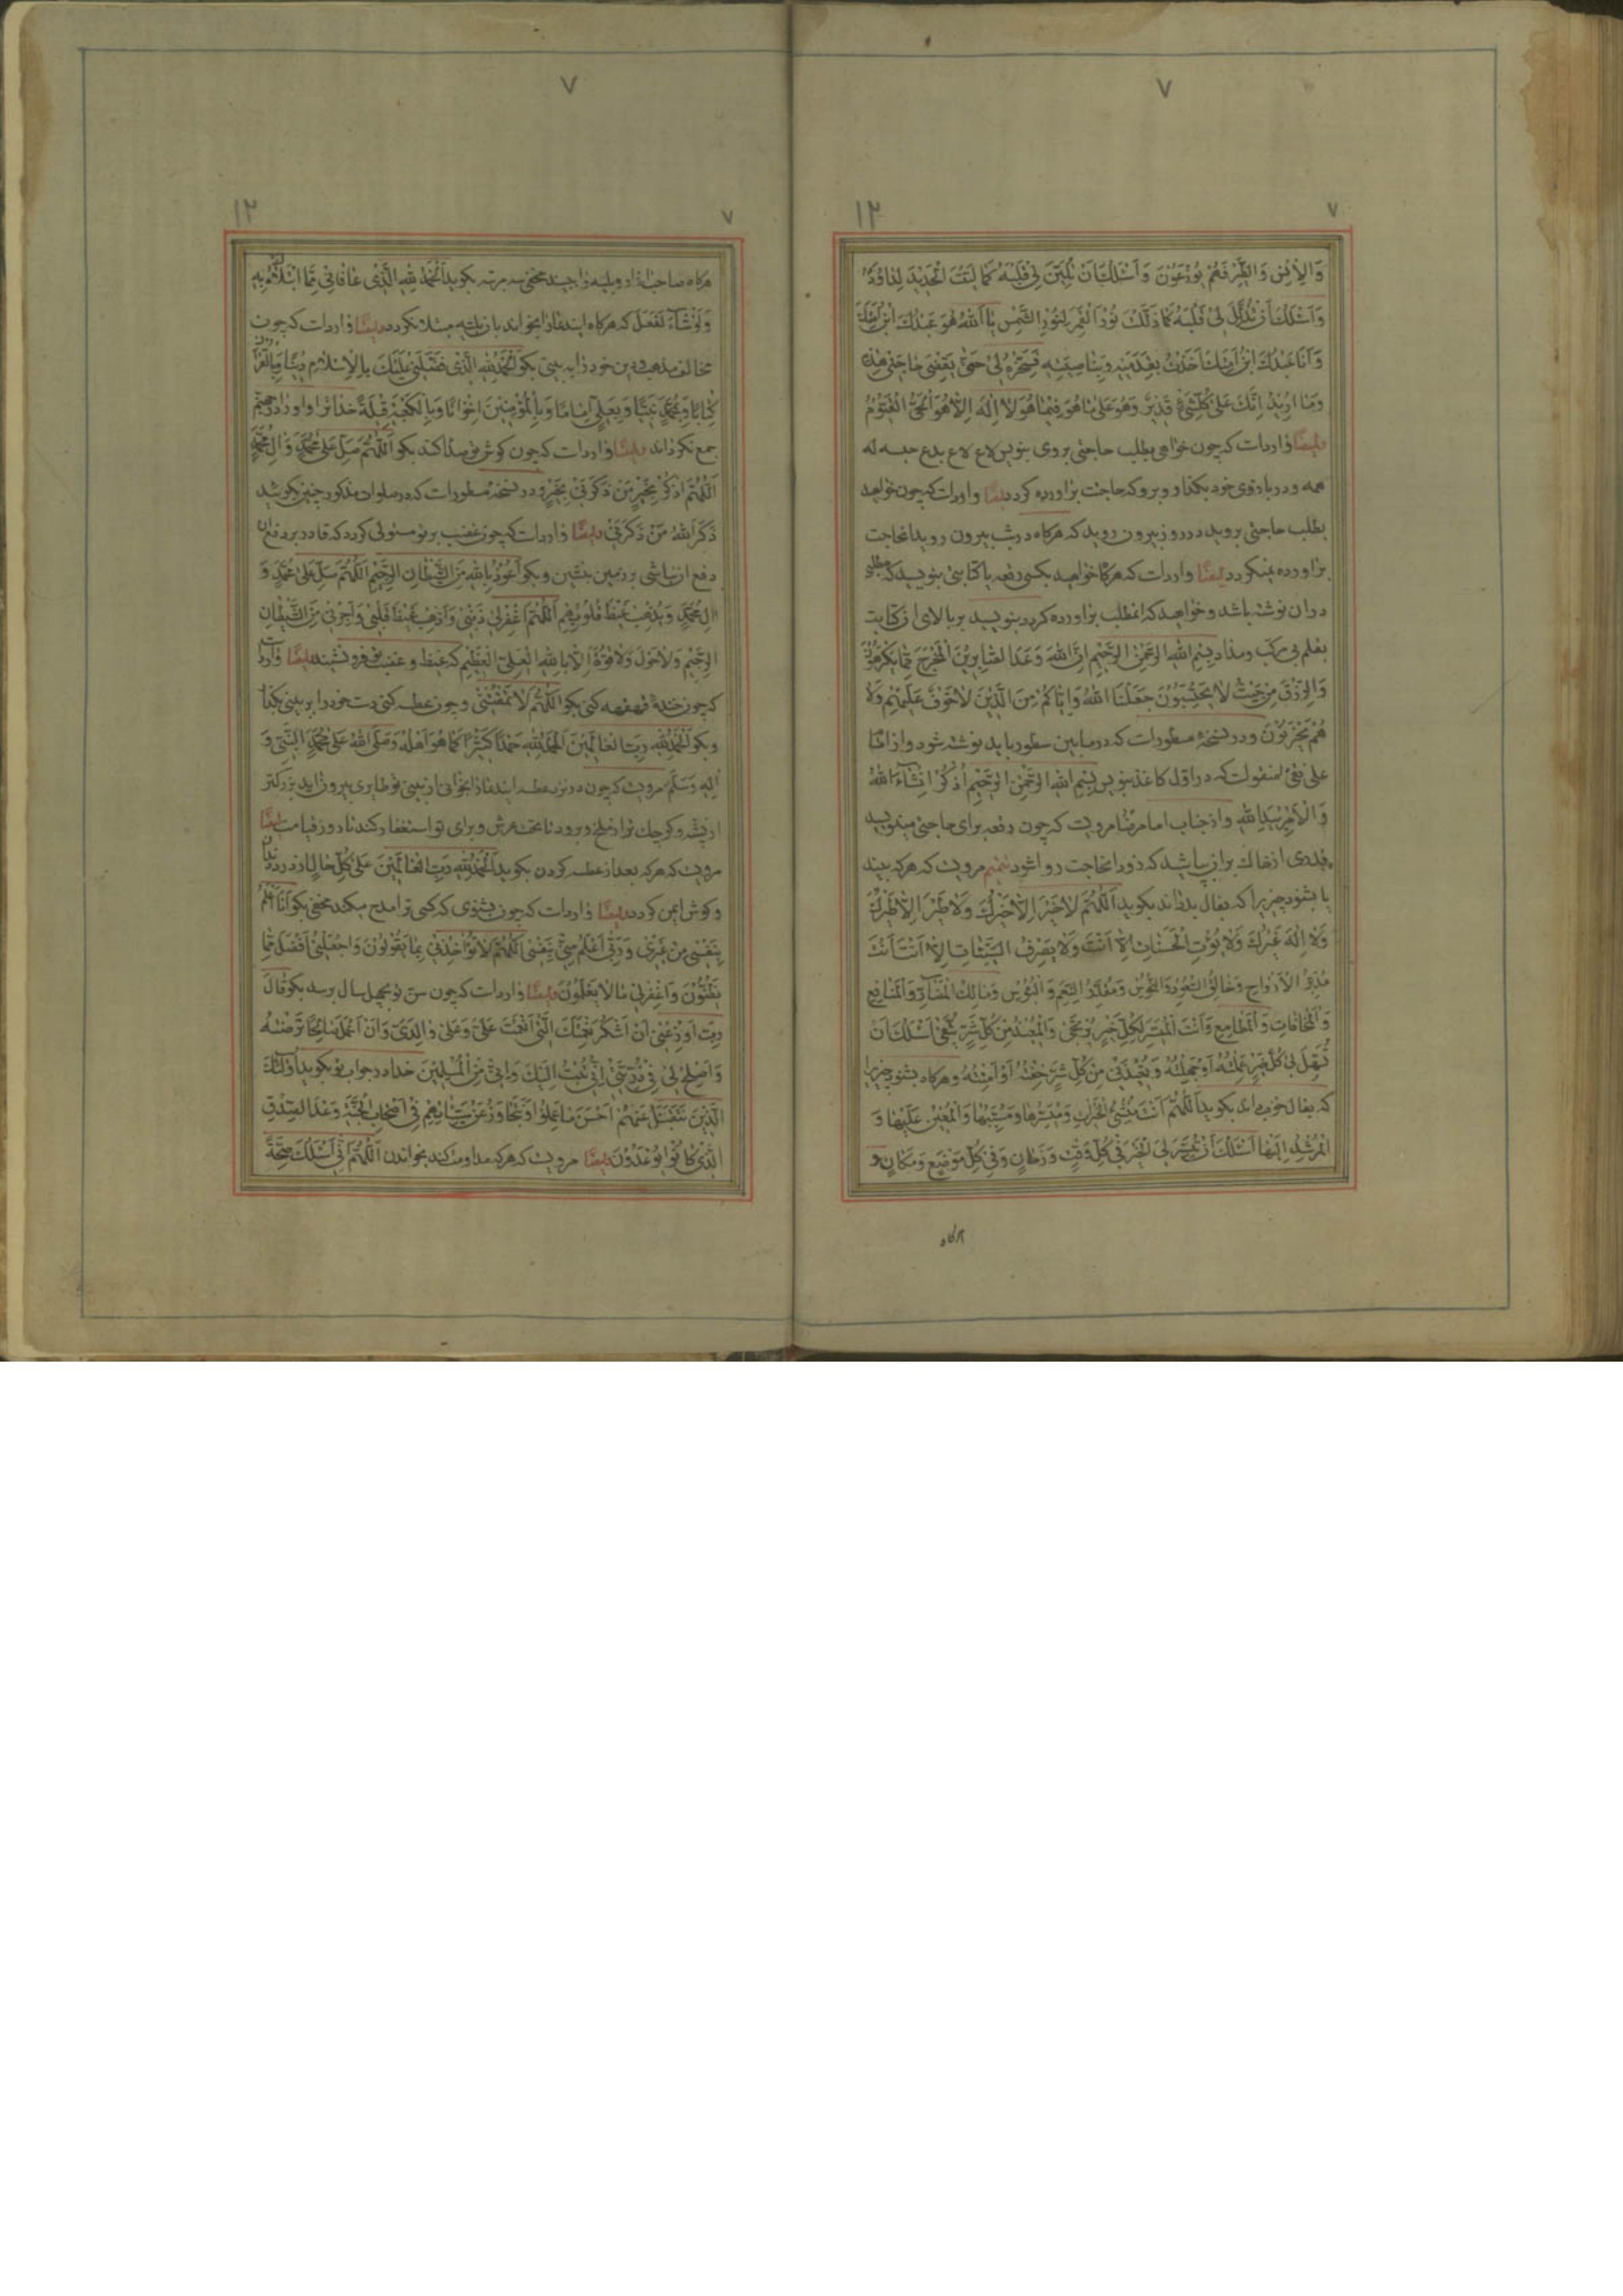 ۷
۷
۱۲
وَالْاِنْسِ وَالطَّیْرِ فَهُمْ یُوزَعُونَ وَ اَسْئَلُكَ اَنْ تُلَیِّنَ لِی قَلْبَهُ كَمَا لَیَّنْتَ الْحَدِیدَ لِدَاوُدَ
وَ اَسْئَلُكَ اَنْ تُذَلِّلَ لِی قَلْبَهُ كَمَا ذَلَّلْتَ نُورَ الْقَمَرِ لِنُورِ الشَّمْسِ یَا اَللّٰهُ هُوَ عَبْدُكَ ابْنُ اَمَتِكَ
وَ اَنَا عَبْدُكَ ابْنُ اَمَتِكَ اَخَذْتَ بِقَدَمَیْهِ وَ بِنَاصِیَتِهِ فَسَخِّرْهُ لِی حَتّٰی یَقْضِیَ حَاجَتِی هٰذِهِ
وَ مَا اُرِیدُ اِنَّكَ عَلٰی كُلِّ شَیْءٍ قَدِیرٌ وَ هُوَ عَلٰی مَا هُوَ فِیمَا هُوَ لَا اِلٰهَ اِلَّا هُوَ الْحَیُّ الْقَیُّومُ
ایضًا وارداست که چون خواهی بطلب حاجتی بروی بنویس لاع لاع بدع حبسه له
همه و در بازوی خود بگذار و برو که حاجت براورده کردد ایضًا وارداست که چون خواهید
بطلب حاجتی بروید در روز بیرون روید که هرکاه در شب بیرون روید انحاجت
براورده نمیکردد ایضًا وارداست که هرکاه خواهید بکسی رقعه یا کتابتی بنویسید که مطلبی
دران نوشته باشد و خواهید که انمطلب براورده کردد بنویسید بر بالای ان کتابت
بقلم بی مرکب و مداد بِسْمِ اللّٰهِ الرَّحْمٰنِ الرَّحِیمِ اِنَّ اللّٰهَ وَعَدَ الصَّابِرِینَ الْمَخْرَجَ مِمَّا یَكْرَهُونَ
وَ الرِّزْقَ مِنْ حَیْثُ لَا یَحْتَسِبُونَ جَعَلَنَا اللّٰهُ وَ اِیَّاكُمْ مِنَ الَّذِینَ لَا خَوْفٌ عَلَیْهِمْ وَ لَا
هُمْ یَحْزَنُونَ و در نسخۀ مسطوراست که در مابین سطور باید نوشته شود و از امام
علی نقی منقولست که در اول کاغذ بنویس بِسْمِ اللّٰهِ الرَّحْمٰنِ الرَّحِیمِ اُذْكُرْ اِنْشَاءَ اللّٰهُ
وَ الْاَمْرُ بِیَدِ اللّٰهِ و از جناب امام رضا مرویست که چون رقعه برای حاجتی مینویسید
قدری از خاك بران بپاشید که زود انحاجت روا شود تتمیم مرویست که هرکه بیند
یا بشنود چیزیرا که بفال بد داند بکوید اَللّٰهُمَّ لَا خَیْرَ اِلَّا خَیْرُكَ وَ لَا طَیْرَ اِلَّا طَیْرُكَ
وَ لَا اِلٰهَ غَیْرُكَ وَ لَا یُؤْتِ الْحَسَنَاتِ اِلَّا اَنْتَ وَ لَا یَصْرِفُ السَّیِّئَاتِ اِلَّا اَنْتَ اَنْتَ
مُدَبِّرُ الْاَرْوَاحِ وَ خَالِقُ السُّعُودِ وَ النُّحُوسِ وَ مُقَدِّرُ النِّعَمِ وَ الْبُؤْسِ وَ مَالِكُ الْمَضَارِّ وَ الْمَنَافِعِ
وَ الْمَخَافَاتِ وَ الْمَطَامِعِ وَ اَنْتَ الْمُیَسِّرُ لِكُلِّ خَیْرٍ یُرْتَجٰی وَ الْمُعِیذُ مِنْ كُلِّ شَرٍّ یُتَّقٰی اَسْئَلُكَ اَنْ
تُسَهِّلَ لِی كُلَّ خَیْرٍ عَلِمْتُهُ اَوْ جَهِلْتُهُ وَ تُعِیذَنِی مِنْ كُلِّ شَرٍّ خِفْتُهُ اَوْ اَمِنْتُهُ و هرکاه بشنود چیزیرا
که بفال خوب داند بکوید اَللّٰهُمَّ اَنْتَ مُنْشِئُ الْخَیْرَاتِ وَ مُیَسِّرُهَا وَ مُسَبِّبُهَا وَ الْمُعِینُ عَلَیْهَا وَ
الْمُرْشِدُ اِلَیْهَا اَسْئَلُكَ اَنْ تُیَسِّرَ لِیَ الْخَیْرَ فِی كُلِّ وَقْتٍ وَ زَمَانٍ وَ فِی كُلِّ مَوْضِعٍ وَ مَكَانٍ و
هرکاه
۷
۷
۱۲
هرکاه صاحب ازار و بلیه را بیند مخفی سه مرتبه بکوید اَلْحَمْدُ لِلّٰهِ الَّذِی عَافَانِی مِمَّا ابْتَلَاكَ بِهِ
وَ لَوْ شَاءَ لَفَعَلَ که هرکاه اینقدر بخواند بان بلیه مبتلا نکردد ایضًا وارداست که چون
مخالف مذهب و دین خود را به بینی بکو اَلْحَمْدُ لِلّٰهِ الَّذِی فَضَّلَنِی عَلَیْكَ بِالْاِسْلَامِ دِینًا وَ بِالْقُرْاٰنِ
كِتَابًا وَ بِمُحَمَّدٍ نَبِیًّا وَ بِعَلِیٍّ اِمَامًا وَ بِالْمُؤْمِنِینَ اِخْوَانًا وَ بِالْكَعْبَةِ قِبْلَةً خدا ترا و او را در جهنم
جمع نکرداند ایضًا وارداست که چون کوش تو صدا کند بکو اَللّٰهُمَّ صَلِّ عَلٰی مُحَمَّدٍ وَ اٰلِ مُحَمَّدٍ
اَللّٰهُمَّ اذْكُرْ بِخَیْرٍ مَنْ ذَكَرَنِی بِخَیْرٍ و در نسخۀ مسطوراست که بعد صلوات مذکور چنین بکوئید
ذَكَرَ اللّٰهُ مَنْ ذَكَرَنِی ایضًا وارداست که چون غضب بر تو مستولی کردد که قادر بر دفع ان
دفع ان نباشی بر زمین بنشین و بکو اَعُوذُ بِاللّٰهِ مِنَ الشَّیْطَانِ الرَّجِیمِ اَللّٰهُمَّ صَلِّ عَلٰی مُحَمَّدٍ وَ
اٰلِ مُحَمَّدٍ وَ یُذْهِبْ غَیْظَ قُلُوبِهِمْ اَللّٰهُمَّ اغْفِرْ لِی ذَنْبِی وَ اَذْهِبْ غَیْظَ قَلْبِی وَ اَجِرْنِی مِنَ الشَّیْطَانِ
الرَّجِیمِ وَ لَا حَوْلَ وَ لَا قُوَّةَ اِلَّا بِاللّٰهِ الْعَلِیِّ الْعَظِیمِ که غیظ و غضب تو فرو نشیند ایضًا وارداست
که چون خندۀ قهقهه کنی بکو اَللّٰهُمَّ لَا تَمْقُتْنِی و چون عطسه کنی دست خود را بر بینی بکذار
و بکو اَلْحَمْدُ لِلّٰهِ رَبِّ الْعَالَمِینَ اَلْحَمْدُ لِلّٰهِ حَمْدًا كَثِیرًا كَمَا هُوَ اَهْلُهُ وَ صَلَّی اللّٰهُ عَلٰی مُحَمَّدٍ النَّبِیِّ وَ
اٰلِهِ وَ سَلَّمَ مرویست که چون در نزد عطسه اینقدر بخوانی از بینی تو طایری بیرون اید بزرکتر
از پشه و کوچك تر از ملخ و برود تا بتحت عرش و برای تو استغفار کند تا روز قیامت ایضًا
مرویست که هرکه بعد از عطسه کردن بکوید اَلْحَمْدُ لِلّٰهِ رَبِّ الْعَالَمِینَ عَلٰی كُلِّ حَالٍ از درد دندان
و کوش ایمن کردد ایضًا وارداست که چون بشنوی که کسی ترا مدح میکند مخفی بکو اَنَا اَعْلَمُ
بِنَفْسِی مِنْ غَیْرِی وَ رَبِّی اَعْلَمُ مِنِّی بِنَفْسِی اَللّٰهُمَّ لَا تُؤَاخِذْنِی بِمَا یَقُولُونَ وَ اجْعَلْنِی اَفْضَلَ مِمَّا
یَظُنُّونَ وَ اغْفِرْ لِی مَا لَا یَعْلَمُونَ ایضًا وارداست که چون سن تو بچهل سال برسد بکو قَالَ
رَبِّ اَوْزِعْنِی اَنْ اَشْكُرَ نِعْمَتَكَ الَّتِی اَنْعَمْتَ عَلَیَّ وَ عَلٰی وَالِدَیَّ وَ اَنْ اَعْمَلَ صَالِحًا تَرْضٰیهُ
وَ اَصْلِحْ لِی فِی ذُرِّیَّتِی اِنِّی تُبْتُ اِلَیْكَ وَ اِنِّی مِنَ الْمُسْلِمِینَ خدا در جواب تو بکوید اُولٰئِكَ
الَّذِینَ نَتَقَبَّلُ عَنْهُمْ اَحْسَنَ مَا عَمِلُوا وَ نَتَجَاوَزُ عَنْ سَیِّئَاتِهِمْ فِی اَصْحَابِ الْجَنَّةِ وَعْدَ الصِّدْقِ
الَّذِی كَانُوا یُوعَدُونَ ایضًا مرویست که هرکه مداومت کند بخواندن اَللّٰهُمَّ اِنِّی اَسْئَلُكَ صِحَّةً